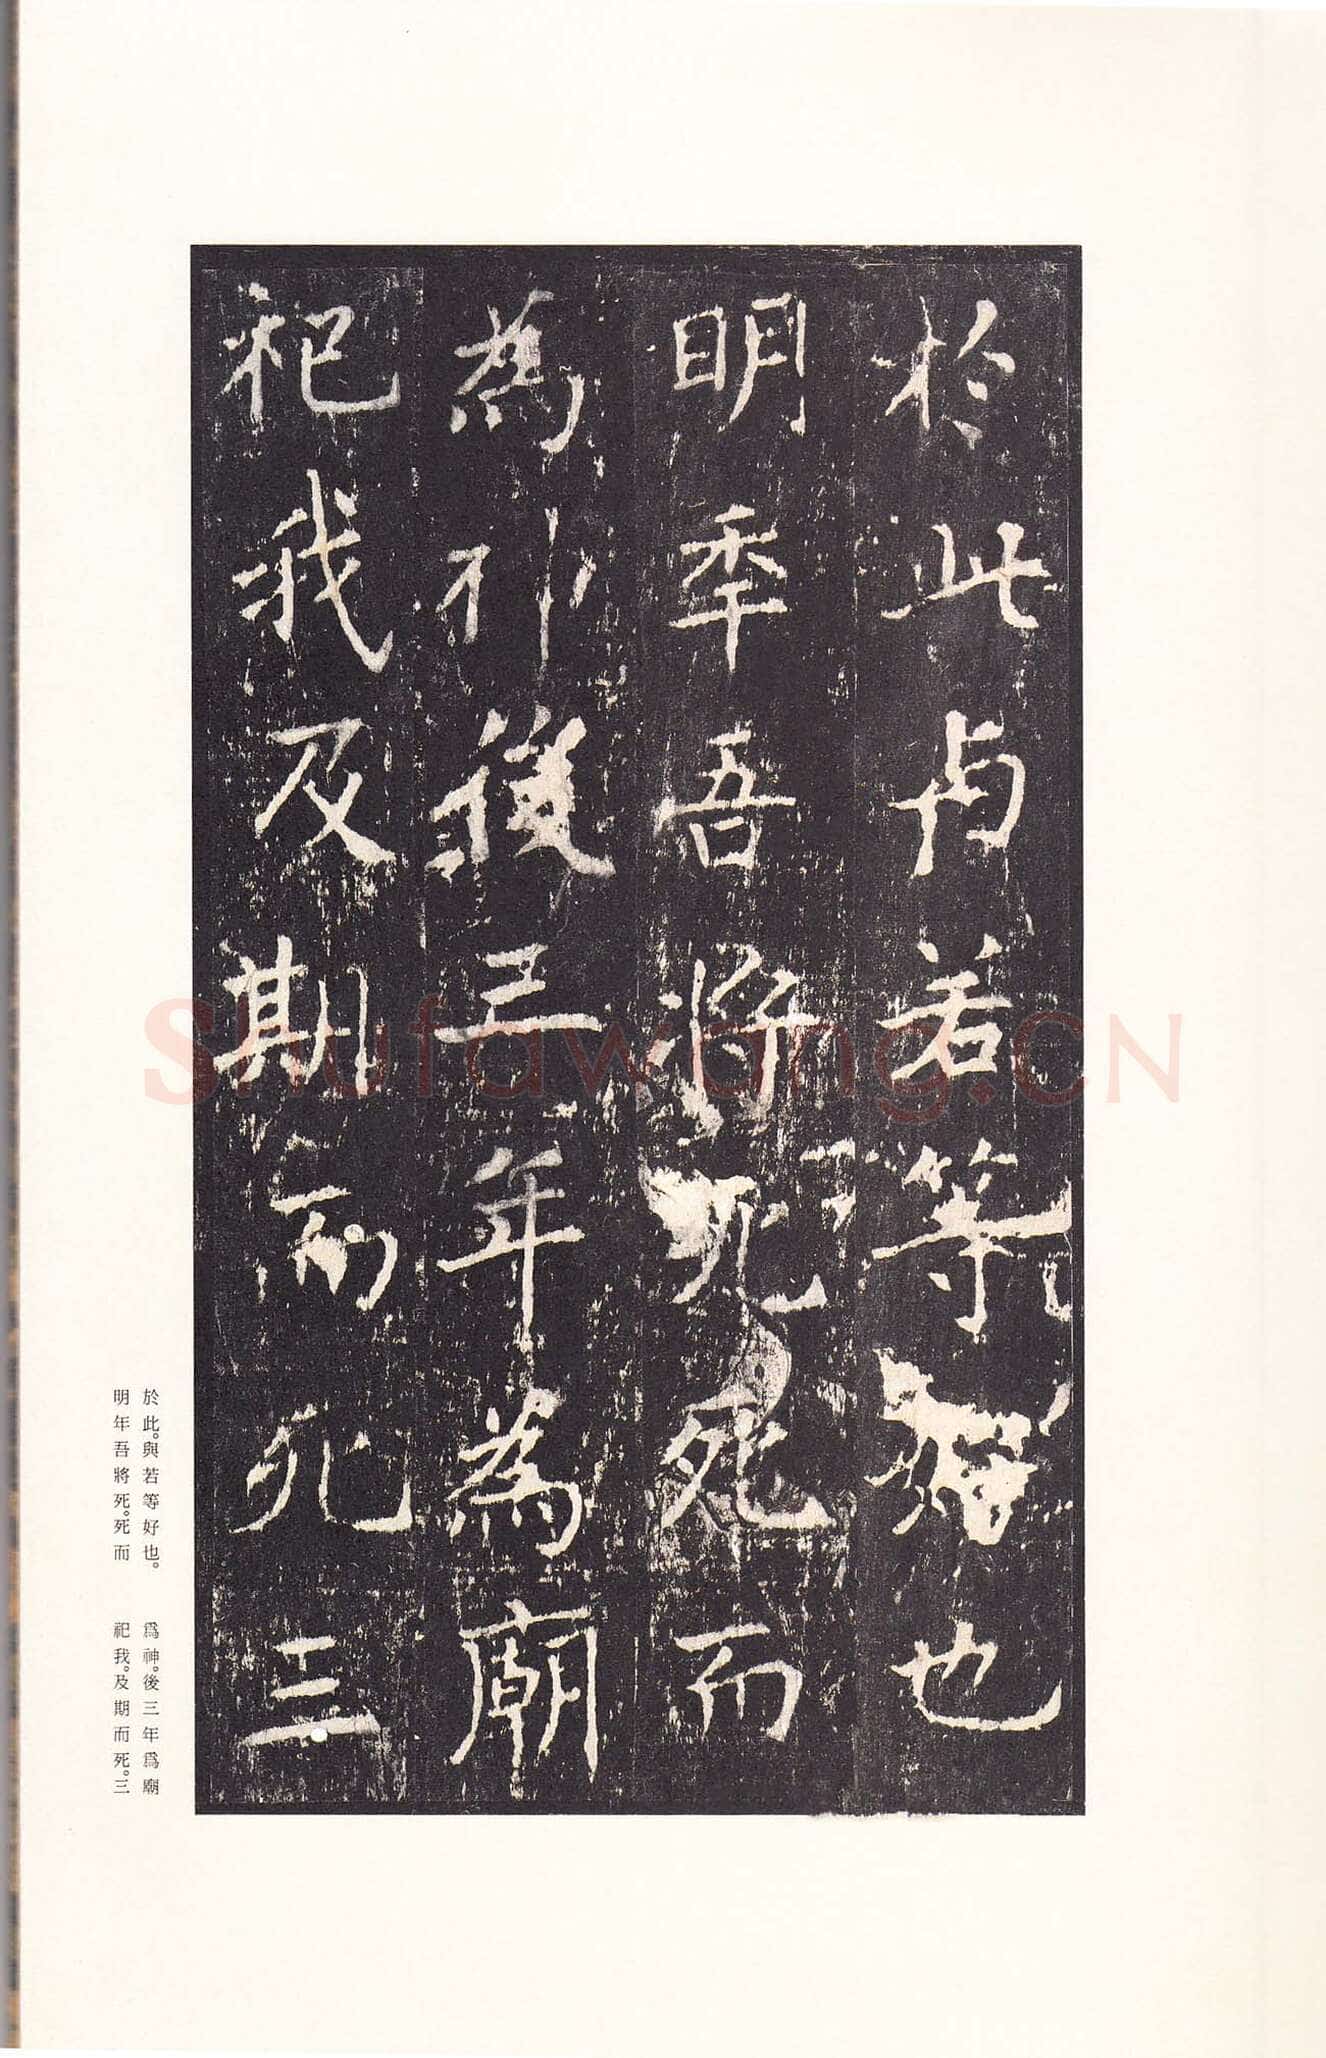 於此与若等好也
明年吾將死死而
為神後三年為廟
祀我及期而死三
於此。與若等好也。
明年吾將死。死而
爲神。後三年爲廟
祀我。及期而死。三
shufawang.CN